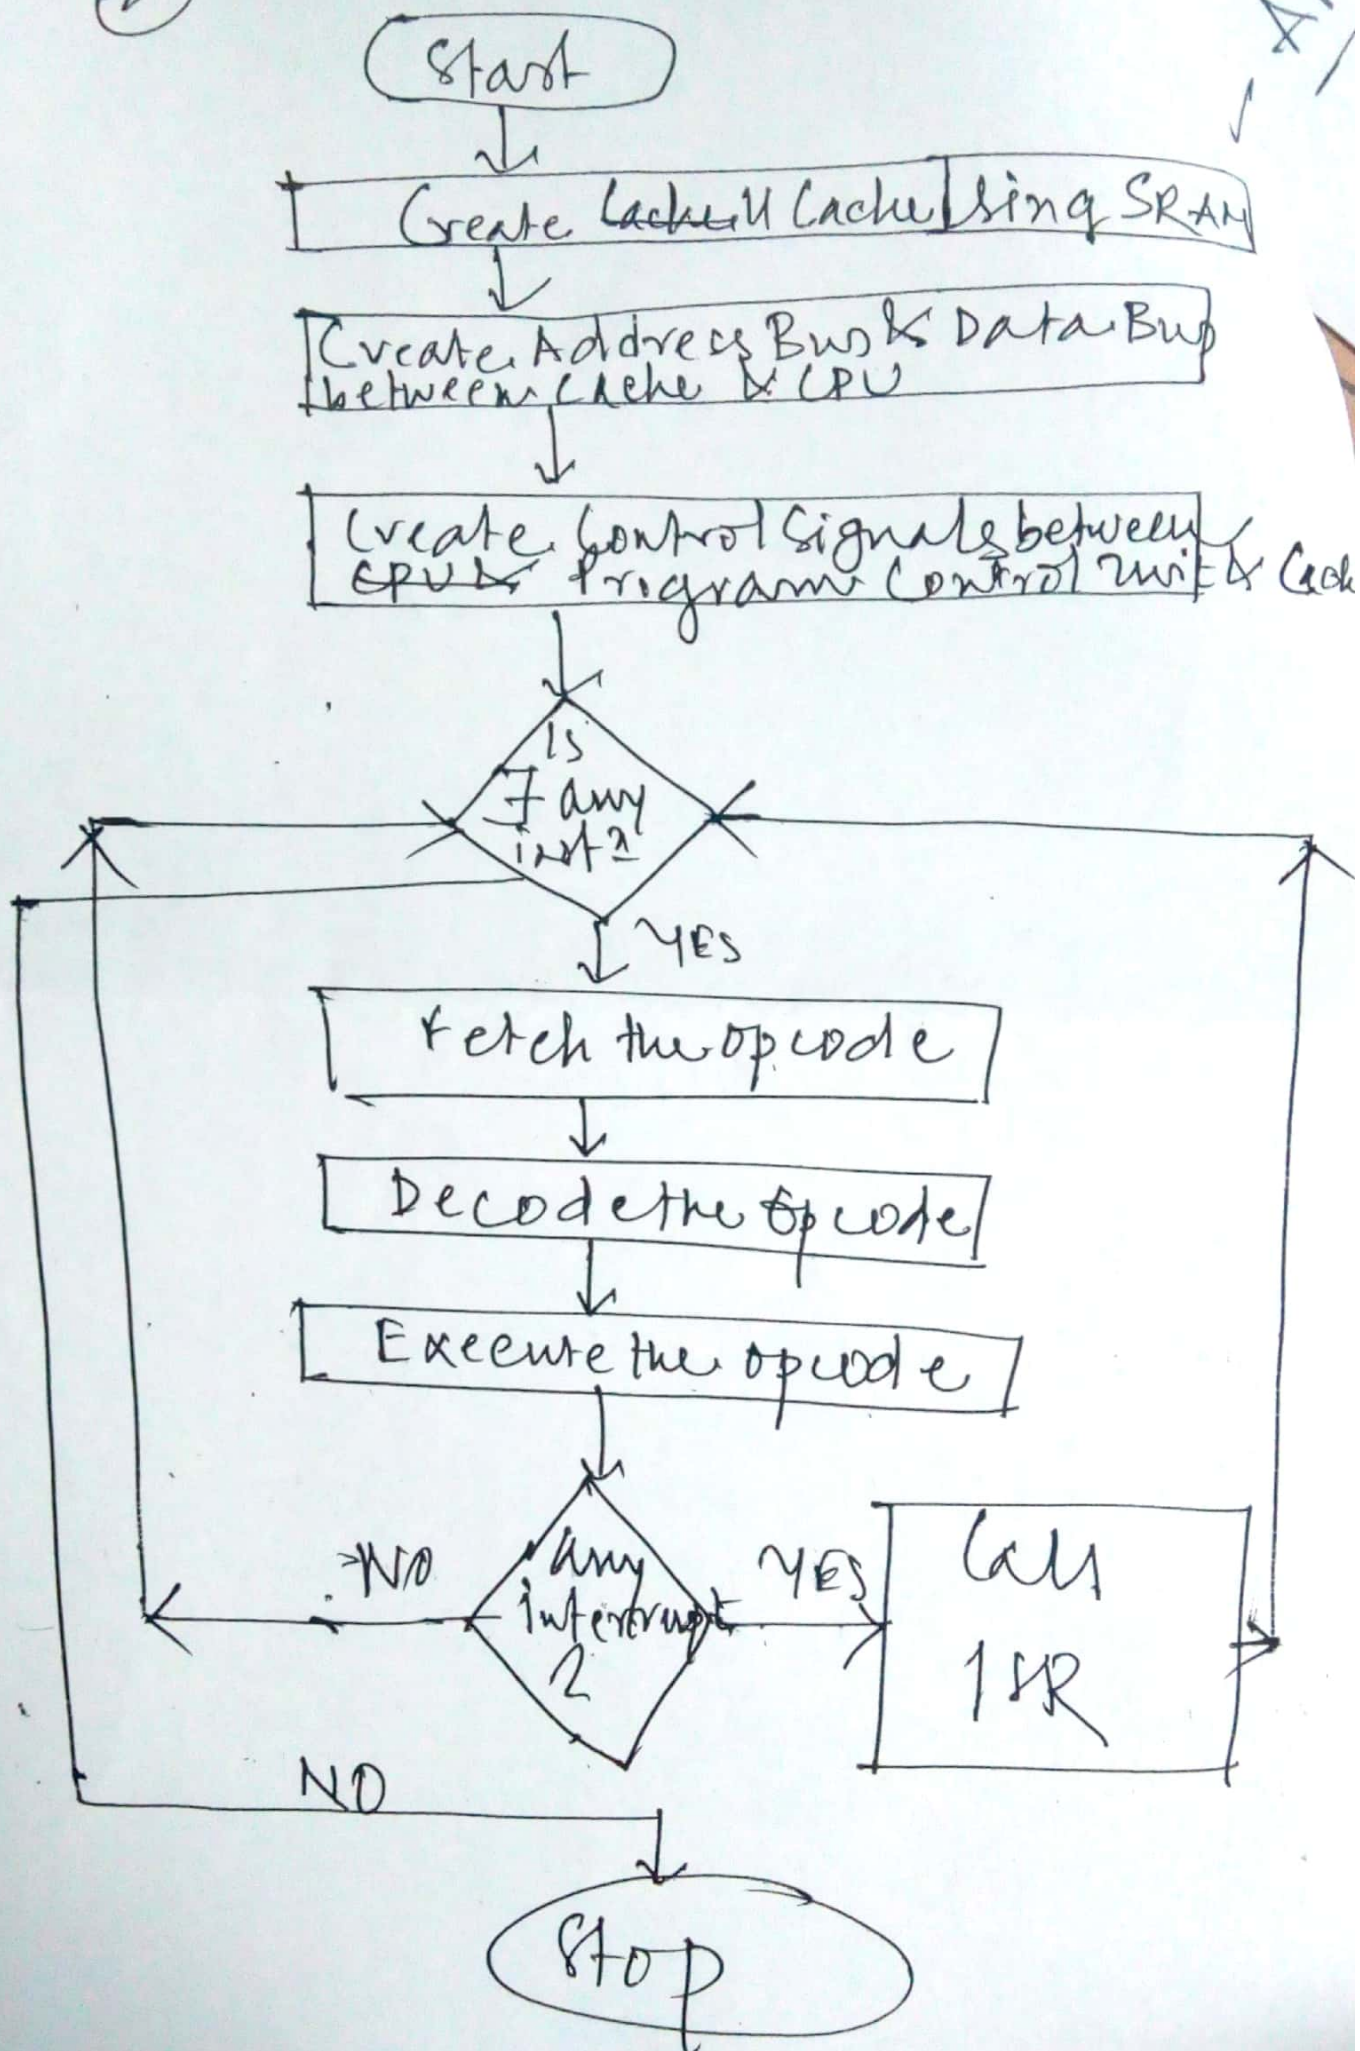 Start
Create Cache Using SRAM
Create Address Bus & Data Bus
between Cache & CPU
Create Control Signals between
CPU & Program Control Unit & Cach
Is
∃ any
inst?
YES
Fetch the opcode
Decode the opcode
Execute the opcode
any
interrupt
?
NO
YES
Call
ISR
NO
Stop